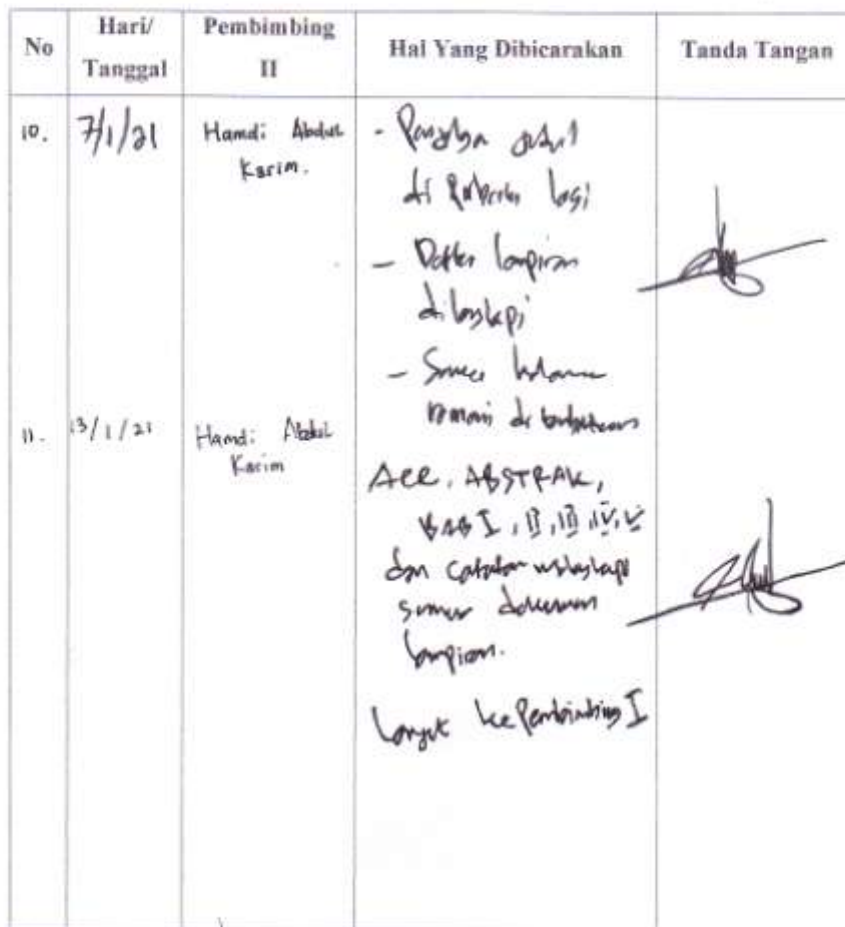 No Hari/ Tanggal Pembimbing II Hal Yang Dibicarakan Tanda Tangan
10. 7/1/21 Hamdi Abdul Karim. -
di lagi
- lampiran
dilengkapi
-
11. 13/1/21 Hamdi Abdul Karim
Acc. ABSTRAK,
BAB I, II, III, IV, V
dan catatan melengkapi
semua dokumen
lampiran.
Lanjut ke Pembimbing I